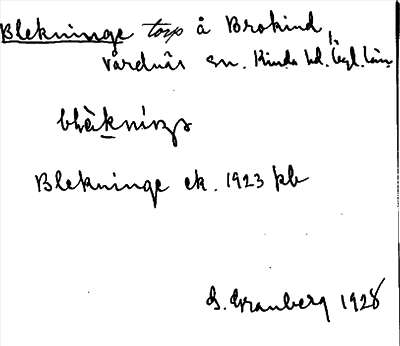 Blekninge torp å Brokind,
Vårdnäs sn. Kinda hd. Ögl. län
Blekninge ek. 1923 kb
G. Granberg 1928